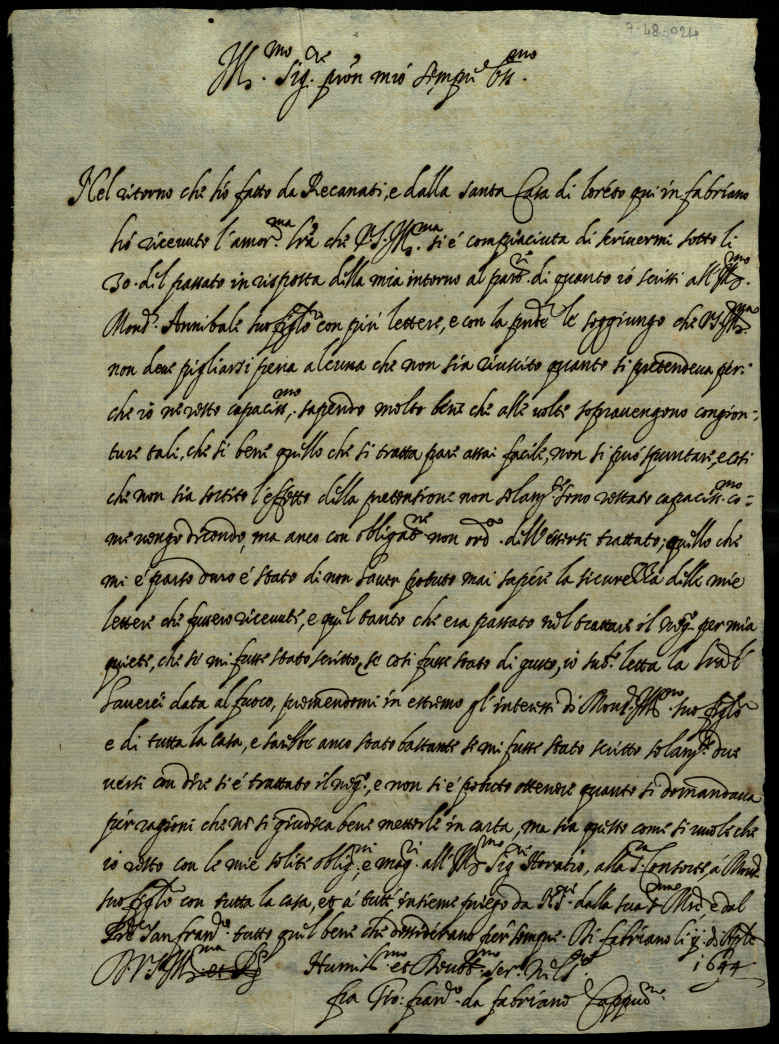 7-48-024
Ill.mo Sig.re pron mio sempre oss.mo
Nel ritorno che hò fatto da Recanati, e dalla santa Casa di loreto qui in fabriano
hò ricevuto l'amor.ma lrã che V.S. Ill.ma si é compiaciuta di scrivermi sotto li
30. del passato in risposta della mia intorno al di quanto io scrissi all'Ill.mo
Mons.r Annibale suo figlo con piú lettere, e con la pnte le soggiungo che V.S. Ill.ma
non deve pigliarsi pena alcuna che non sia riuscito quanto si pretendeva per:
che io ne resto capaciss.mo, sapendo molto bene che alle volte sopravengono congion:
ture tali, che se bene quello che si tratta pare assai facile, non si può spuntare, e così
che non sia sortito l'effetto della pretensione non solam.te sono restato capaciss.mo co:
me vengo dicendo, ma anco con obligat.ne non ord.a dell'essersi trattato; quello che
mi é parso duro é stato di non haver potuto mai sapere la sicurezza delle mie
lettere che fussero ricevute, e quel tanto che era passato nel trattare il neg.o per mia
quiete, che se mi fusse stato scritto, se così fusse stato di gusto, io sub.o letta la
haverei data al fuoco, premendomi in estremo gl'interessi di Mons.r Ill.mo suo figlo
e di tutta la casa, e sarebbe anco stato bastante se mi fusse stato scritto solam.te due
versi con dire si é trattato il neg.o, e non si é potuto ottenere quanto si domandava
per ragioni che ne si giudica bene metterle in carta, ma sia questo come si vuole che
io resto con le mie solite oblig.ni, e mag.ri all'Ill.mo Sig.re Horatio, alla S.ra Consorte, á Mons.r
suo figlo con tutta la casa, et á tutti insieme priego da dalla sua e dal
Pre San fran.co tutto quel bene che desiderano per sempre. Di fabriano li di Aple
D.V.S. Ill.ma Humiliss.mo et Devot.mo Ser. nel S.re 1644
fra Gio: fran.co da fabriano Capp.no